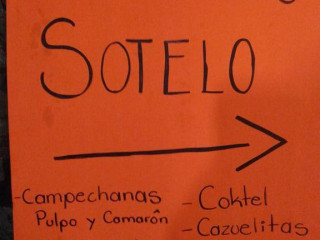 SOTELO
-Campechanas
Pulpo y Camarón
- Coktel
- Cazuelitas